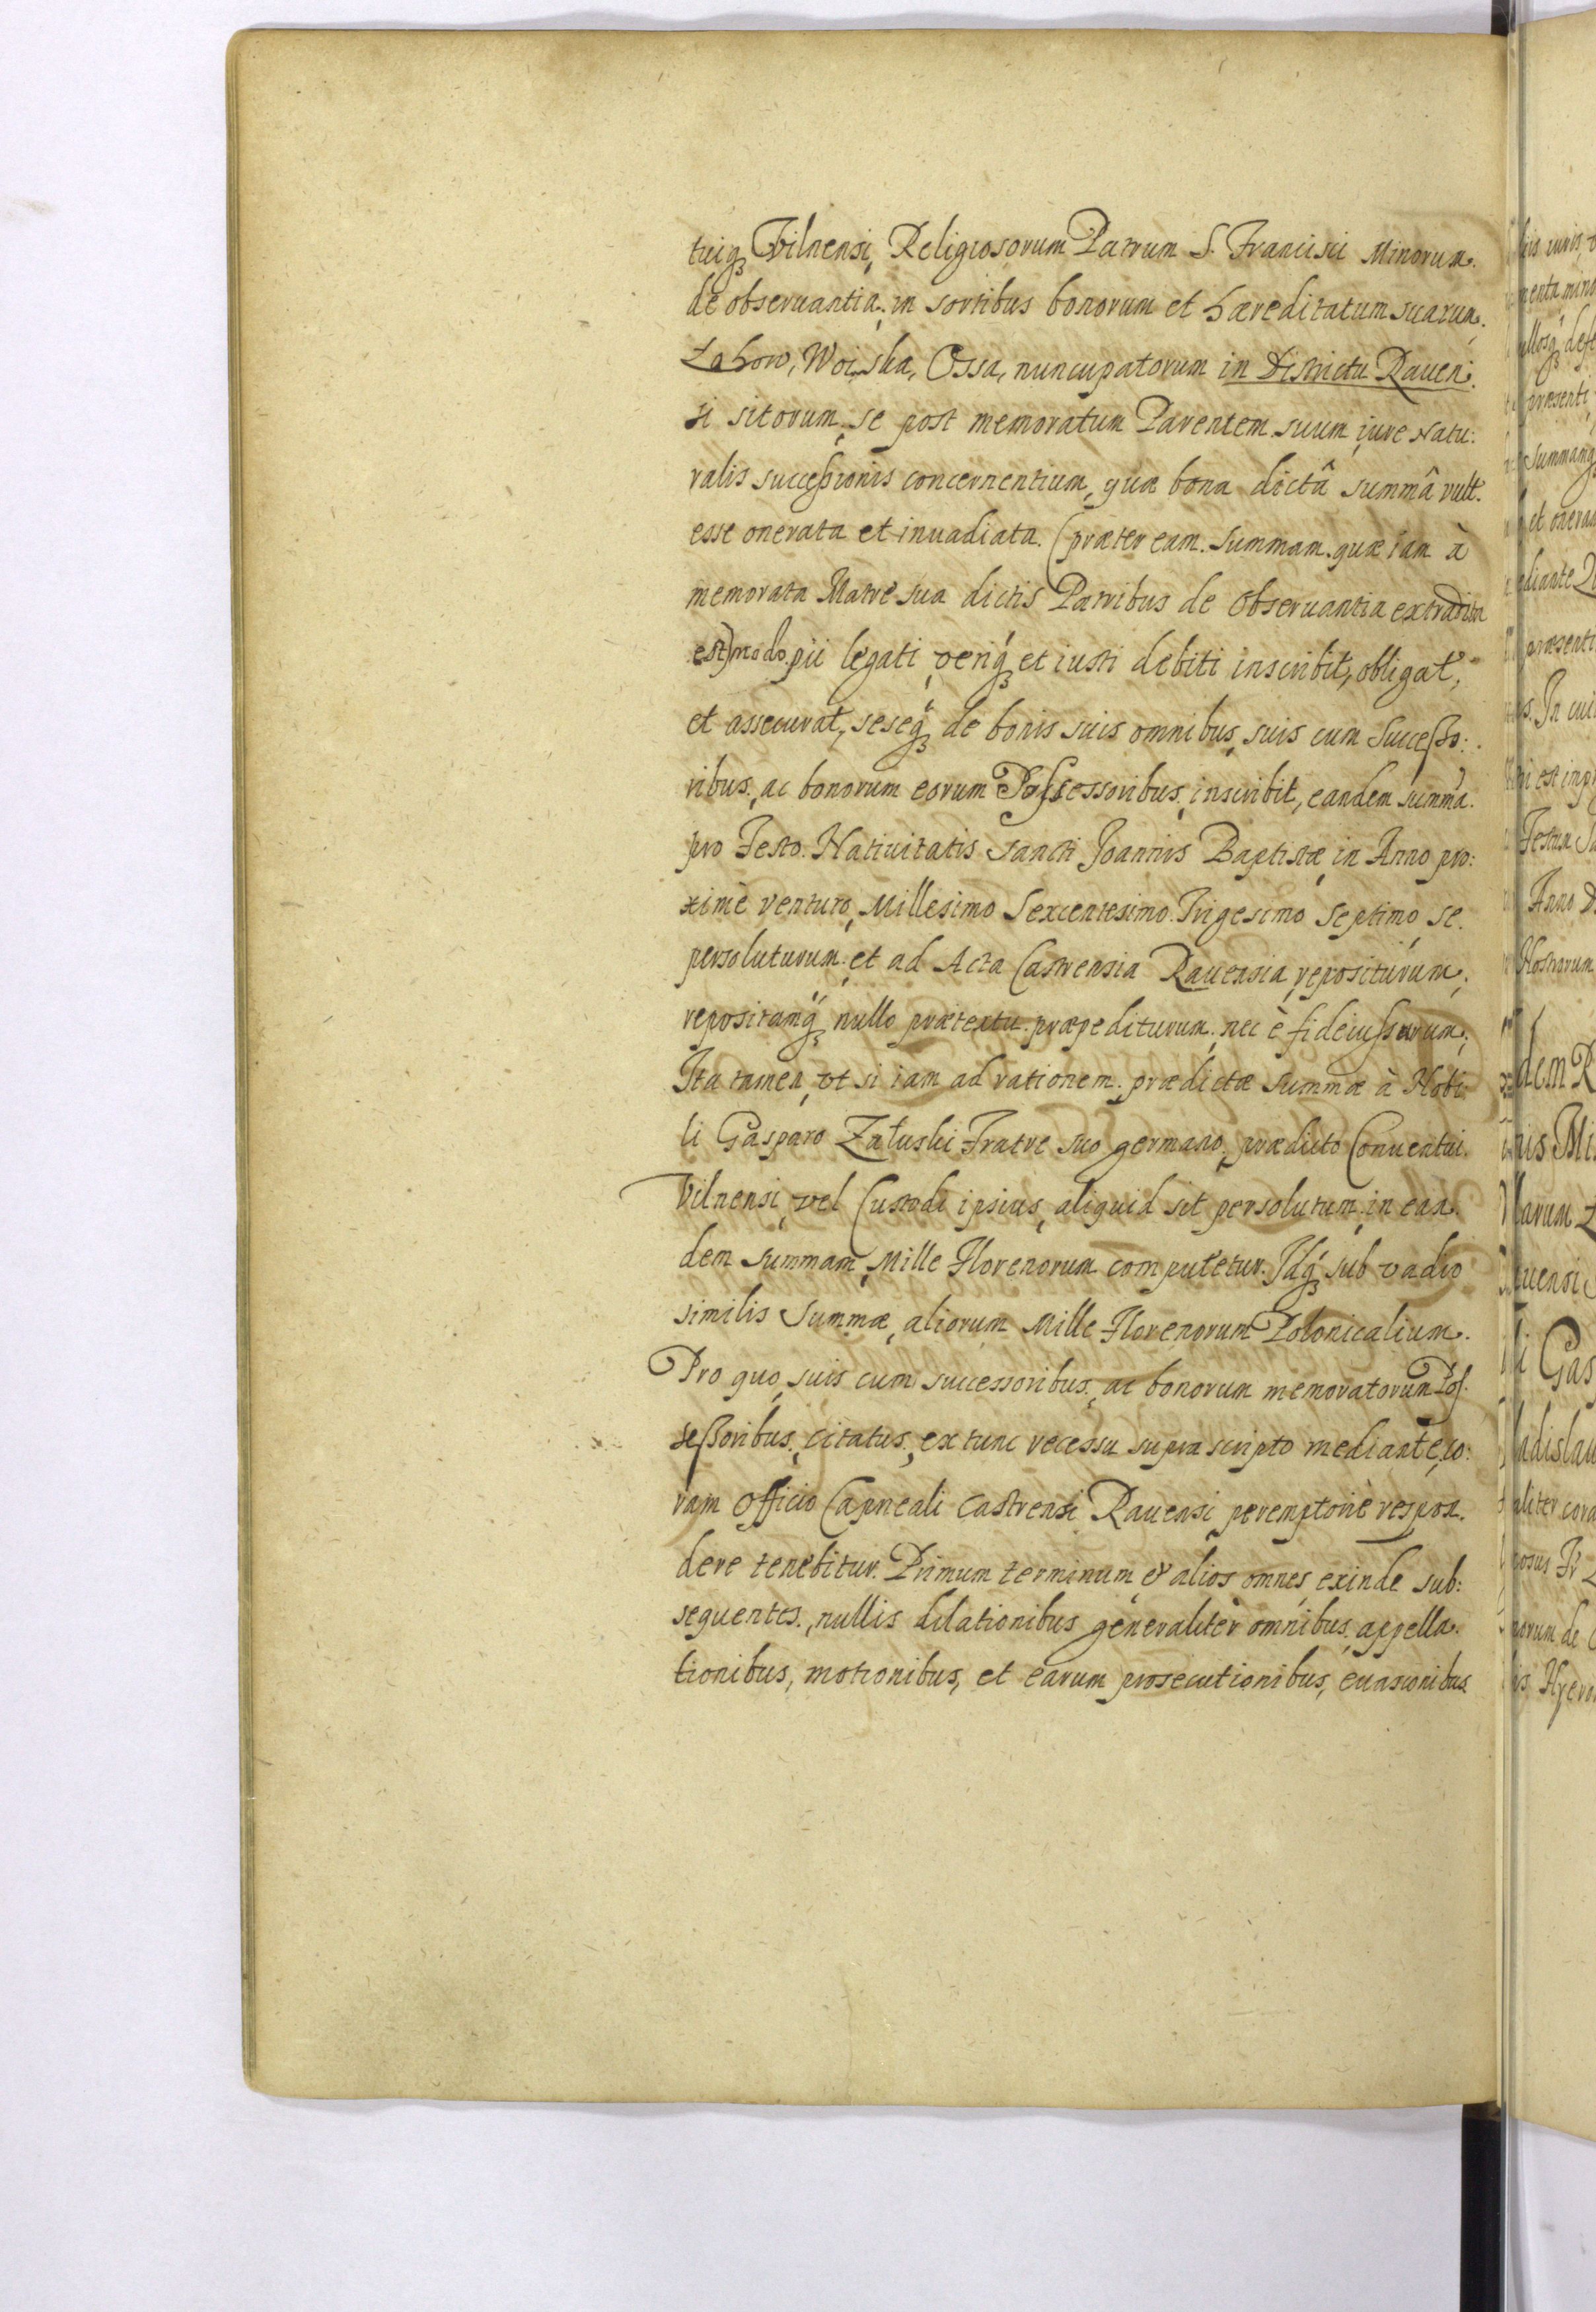 tuiq₃ Vilnensi, Religiosorum Patrum S. Francisci Minorum.
de obseruantia; in sortibus bonorum et hæreditatum suarum.
Zahow, Woiska, Ossa, nuncupatorum in Districtu Rauen:
si sitorum, se post memoratum Parentem suum iure Natu:
ralis successionis concernentium, quæ bona dictâ summâ vult.
esse onerata et inuadiata. (præter eam. summam. quæ iam à
memorata Matre sua dictis Patribus de Obseruantia extradita
est) modo. pii legati, veriq₃ et iusti debiti inscribit, obligat,
et assecurat, seseq₃ de bonis suis omnibus, suis cum Successo:
ribus, ac bonorum eorum Possessoribus, inscribit, eandem summã.
pro Festo. Natiuitatis Sancti Joannis Baptistæ in Anno pro:
ximè venturo, Millesimo Sexcentesimo. Trigesimo septimo, se.
persoluturum; et ad Acta Castrensia Rauensia, repositurum;
repositamq₃ nullo prætextu. præpediturum; nec è fideiussurum;
Ita tamen, vt si iam ad rationem. prædictæ summæ à Nobi:
li Gasparo Załuski Fratre suo germano, prædicto Conuentui.
Vilnensi, vel Custodi ipsius, aliquid sit persolutum, in ean.
dem summam, Mille Florenorum computetur. Idq₃ sub vadio
similis Summæ, aliorum Mille Florenorum Polonicalium.
Pro quo, suis cum successoribus, ac bonorum memoratorum Pos:
sessoribus, citatus, ex tunc recessu supra scripto mediante, co:
ram Officio Capneali Castrensi Rauensi peremptoriè respon.
dere tenebitur. Primum terminum, & alios omnes, exinde sub:
sequentes, nullis dilationibus generalitèr omnibus, appella.
tionibus, motionibus, et earum prosecutionibus, euasionibus